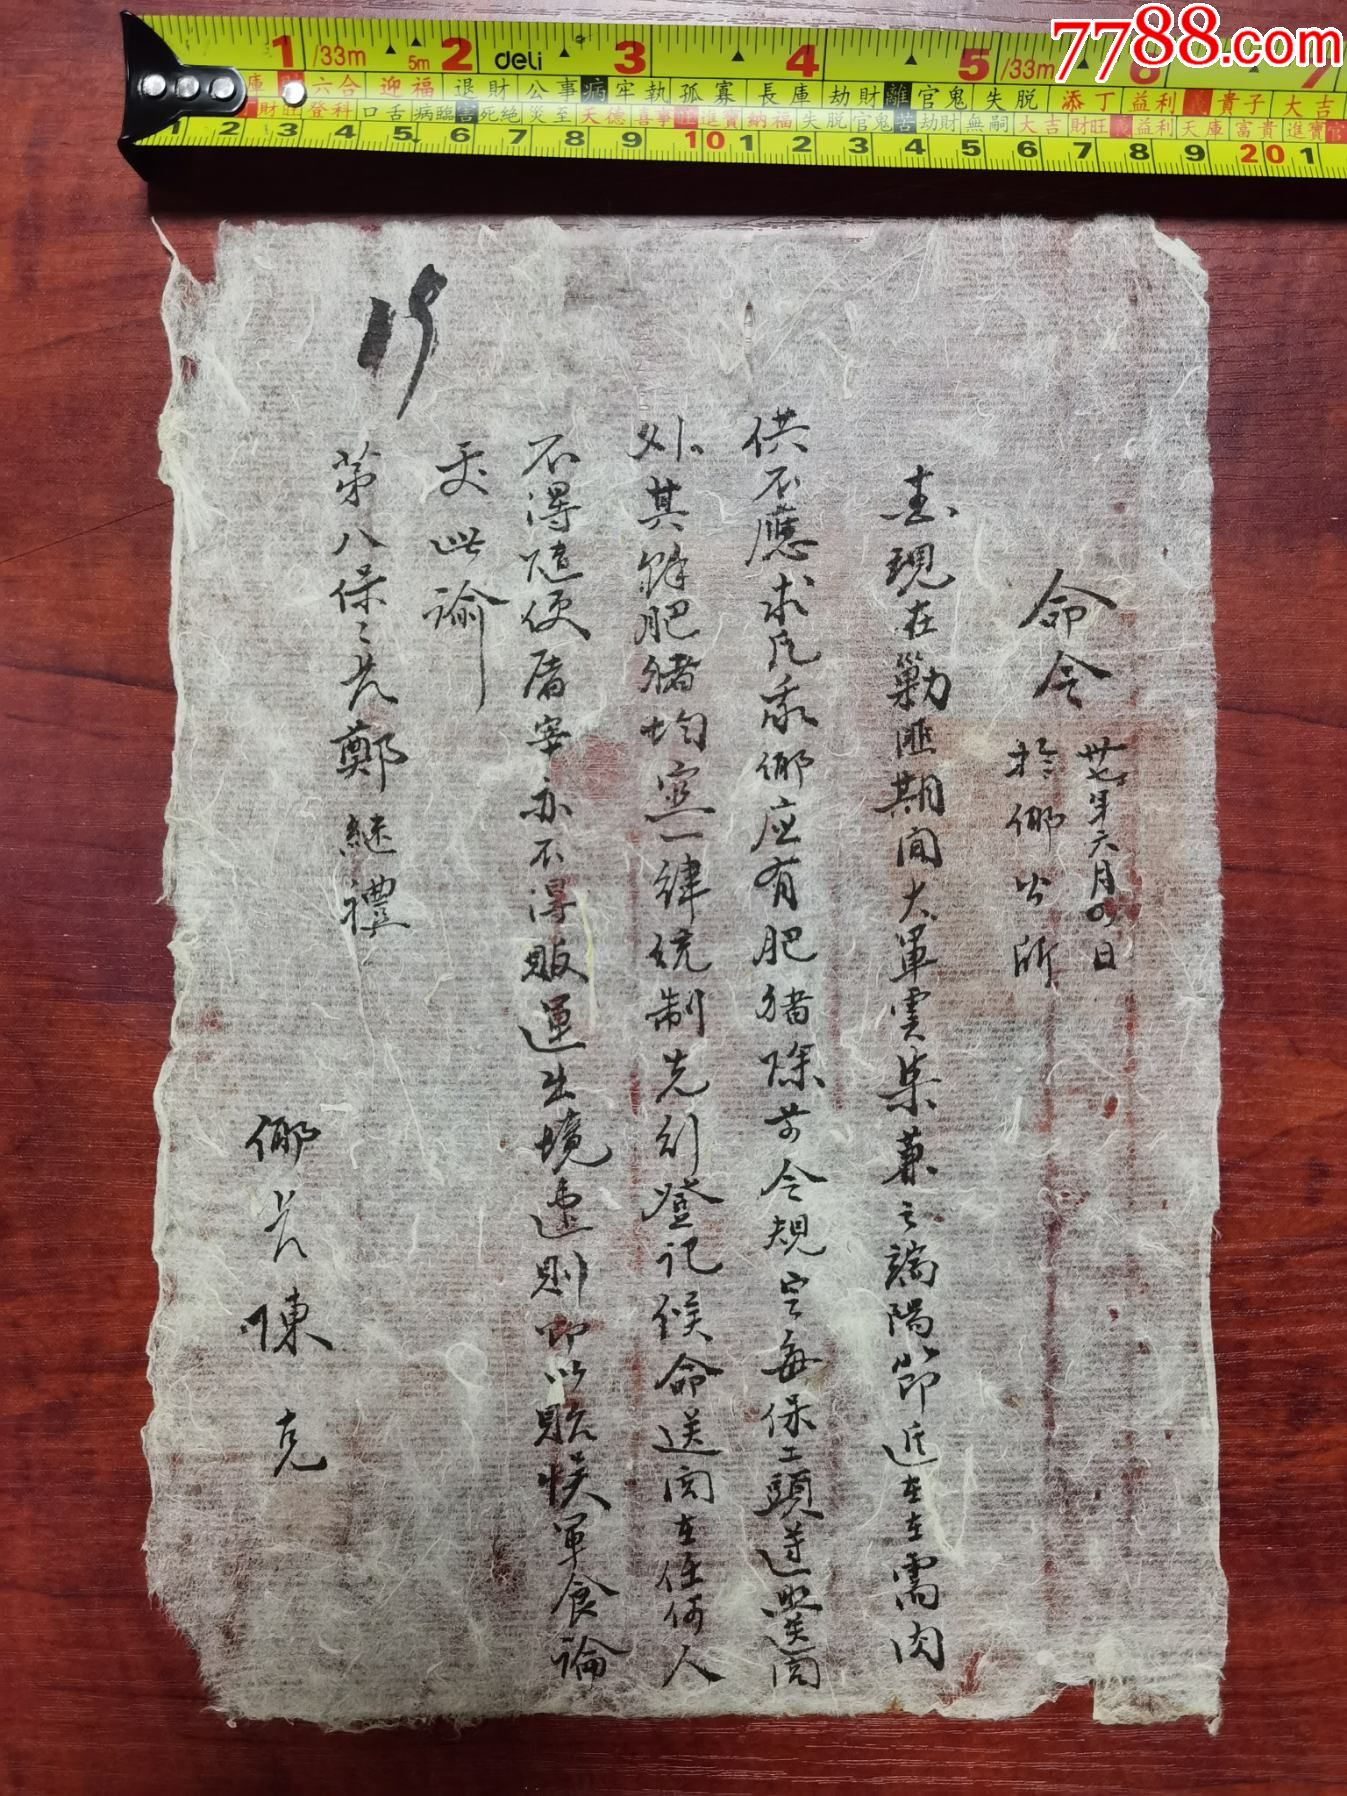 7788.com
1 /33m 5m 2 deli 3 4 5 /33m 6 7
庫 財 六合 迎福 退財 公事 病 牢執 孤寡 長庫 劫財 離 官鬼 失脱 添丁 益利 義 貴子 大吉
財旺 登科 口舌 病臨 害 死絶 災至 天德 喜事 進寶 納福 失脱 官鬼 苦 劫財 無嗣 大吉 財旺 義 益利 天庫 富貴 進寶 官
1 2 3 4 5 6 7 8 9 10 1 2 3 4 5 6 7 8 9 20 1
命令 卅七年六月四日
於鄉公所
查現在勦匪期间大軍雲集兼之端陽節近在在需肉
供不應求凡我鄉应有肥猪除前令規定每保二頭遵照送向
外其餘肥猪均密一律統制先行登記候命送向在任何人
不得隨便屠宰亦不得販運出境違則即以貽悮軍食論
此諭
第八保:长鄭継禮
鄉长陳克